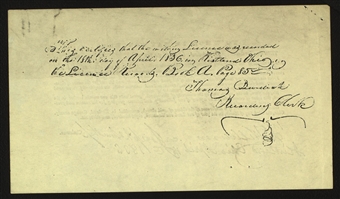 This certifies that the within License was recorded
on the 18th day of April 1836, in Kirtland Ohio,
in License Records, Book A, Page 85
Thomas Burdick
Recording Clerk